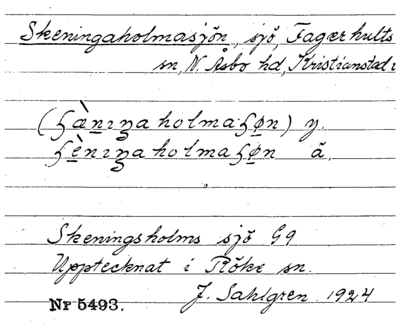 Skeningaholmasjön, sjö, Fagerhults
sn, N. Åsbo hd, Kristianstad
(ɧæ̀nɪŋaholmaɧøn) y.
ɧènɪŋaholmaɧøn ä.
Skeningsholms sjö G9
Upptecknat i Röke sn.
Nr 5493. J. Sahlgren 1924